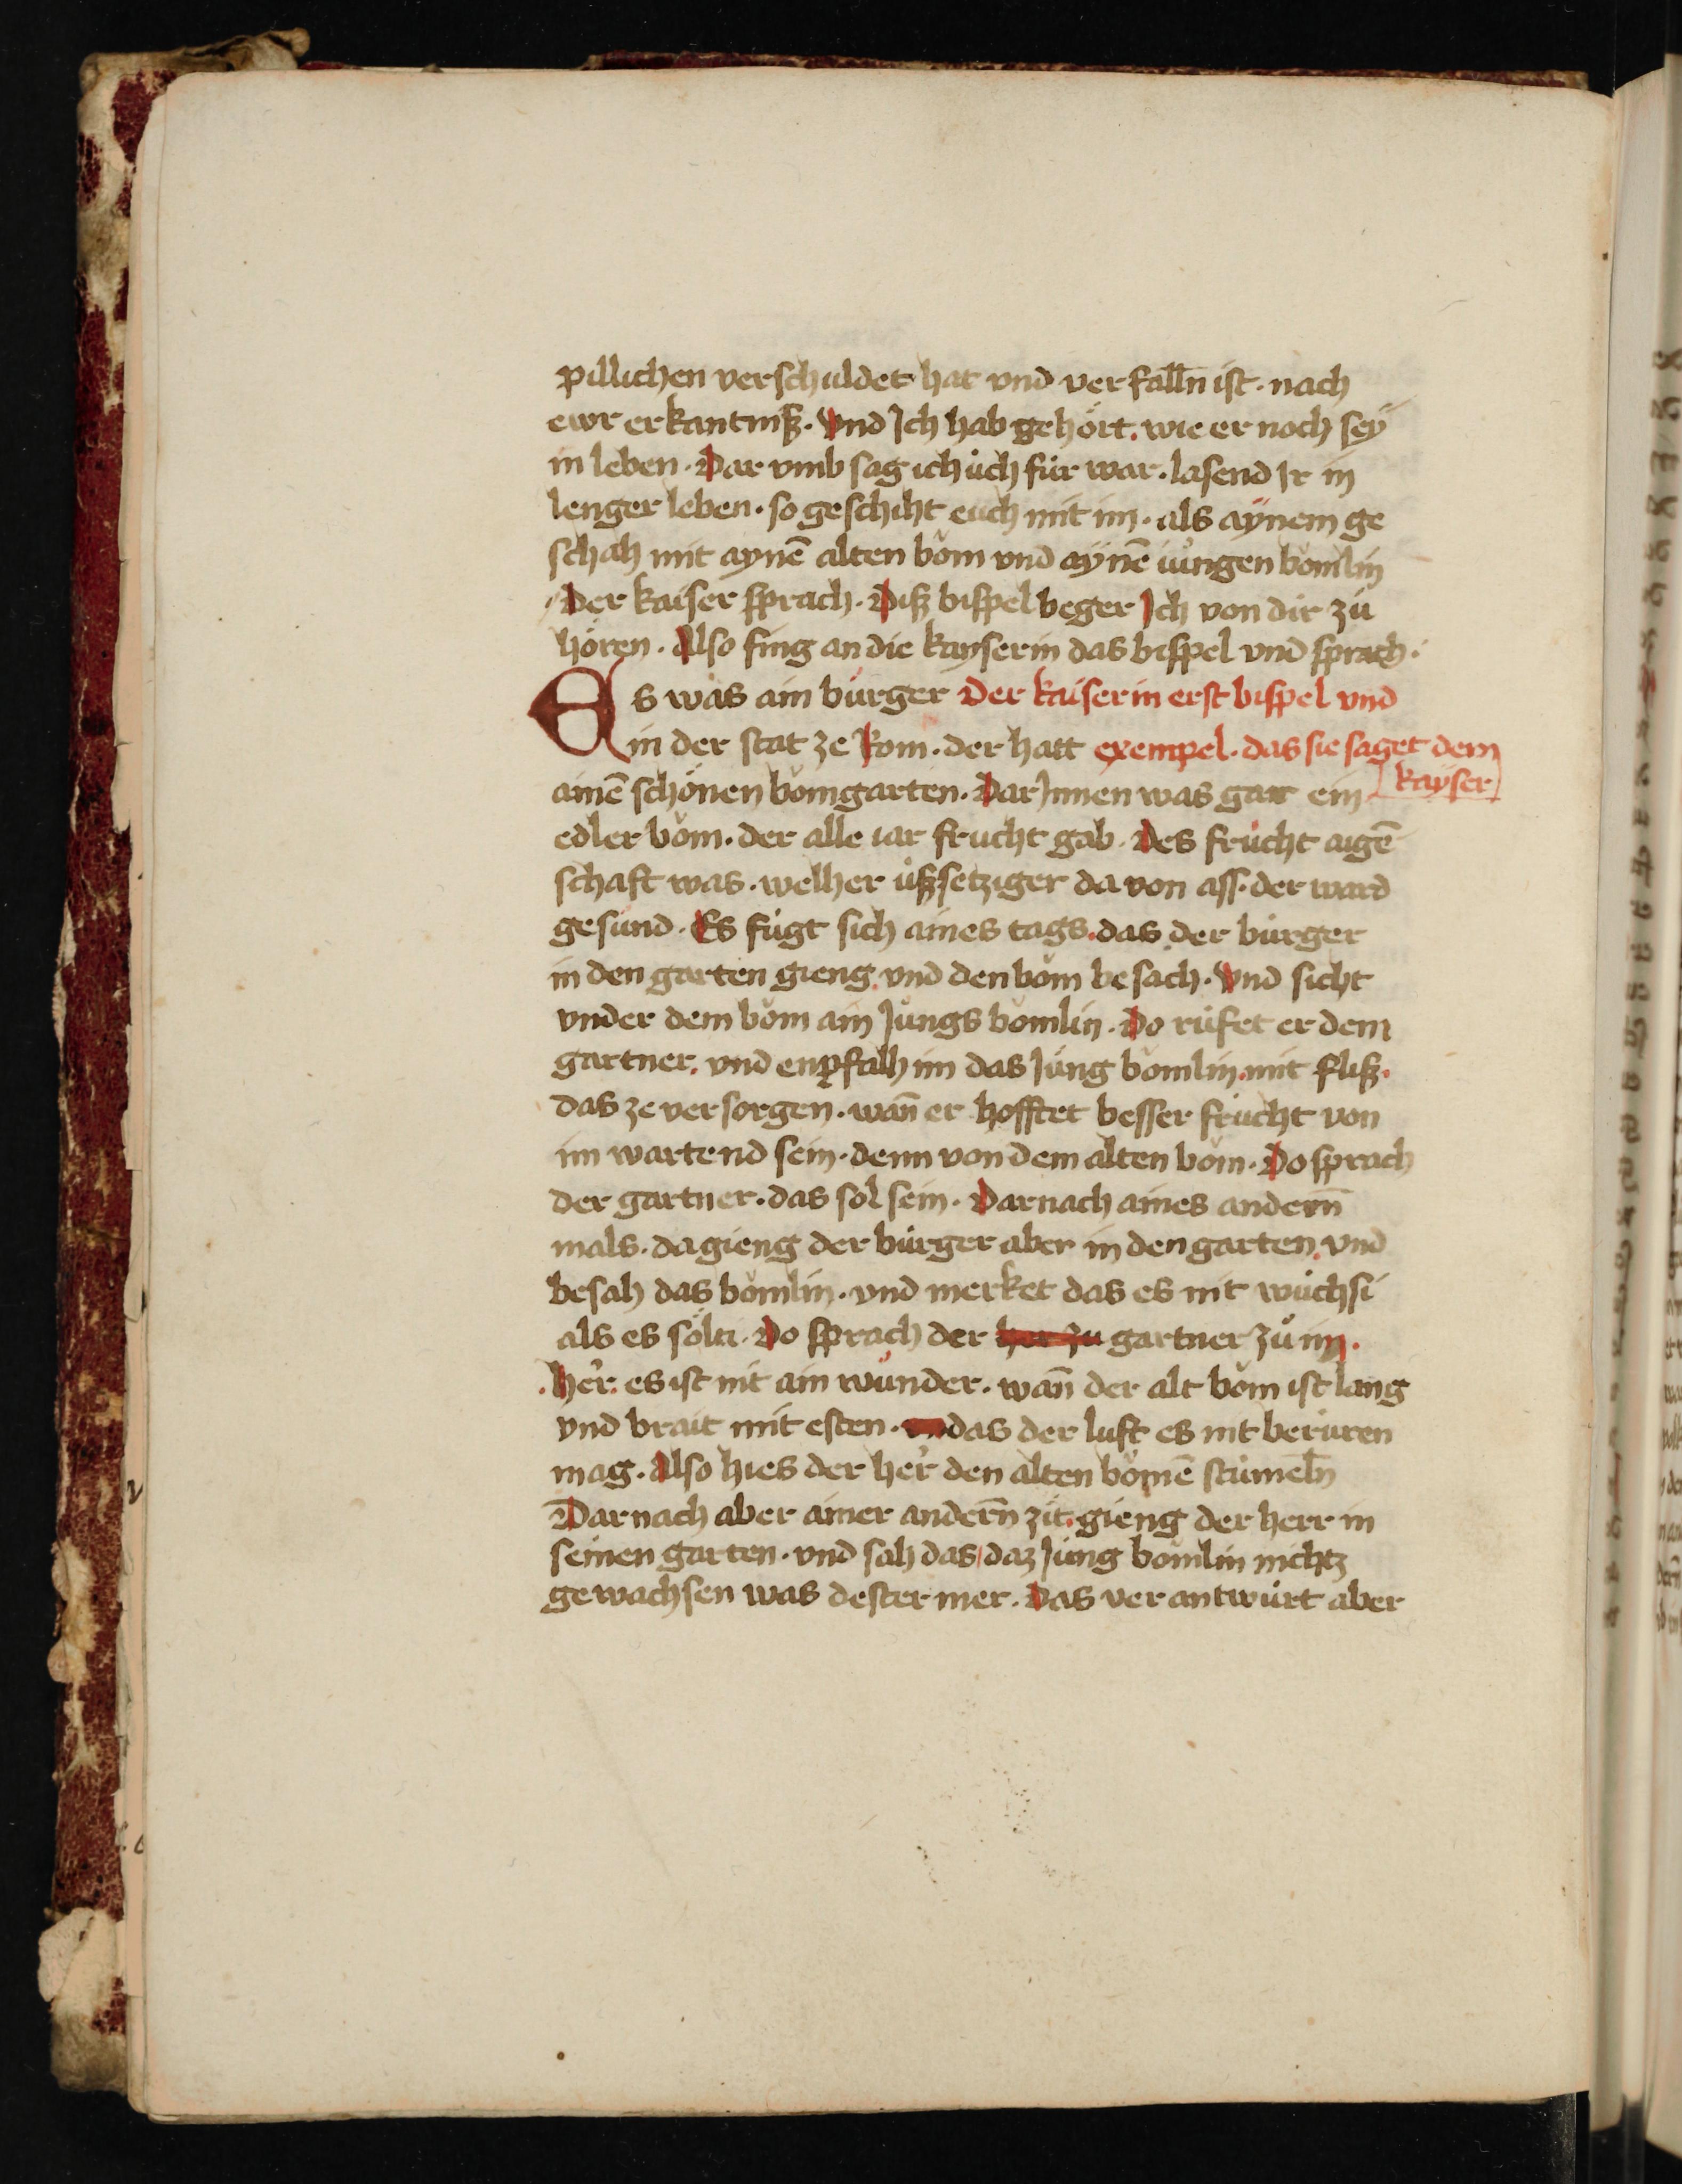 pillichen verschuldet hat vnd verfalln̄ ist · nach
ewr erkantniß · Vnd Ich hab gehört . wie er noch sey
in leben · Dar vmb sag ich üch für war · lasend Ir in
lenger leben · so geschiht euch mit im · als aynem ge
schah mit aynē alten bom vnd aynē iungen bomlin
Der kaiser sprach · Diß bispel beger Ich von dir zů
hören · Also fing an die kayserin das bispel vnd sprach ·
Es was ain burger Der kaiserin erst bispel vnd
in der stat ze Rom · der hatt exempel · das sie saget dem
ainē schönen bomgarten · Dar Innen was gar ein kayser
edler bom · der alle iar frucht gab · Des frucht aigē
schaft was · welher ußsetziger da von ass · der ward
gesund · Es fügt sich aines tags . das der burger
in den garten gieng . vnd den bom besach · Vnd sicht
vnder dem bom ain Jungs bomlin · Do rüfet er dem
gartner . vnd enpfalh im das Jung bomlin . mit fliß ·
das ze versorgen · wan̄ er hofftet besser frucht von
im wartend sein · denn von dem alten bom · Do sprach
der gartner · das sol sein · Darnach aines andern̄
mals · da gieng der burger aber in den garten . vnd
besah das bomlin · vnd merket das es nit wüchsi
als es sölti · Do sprach der her zu gartner zů im .
. her̄ . es ist nit ain wunder · wan̄ der alt bom ist lang
vnd brait mit esten · das der luft es nit berüren
mag · Also hies der her̄ den alten bomē stümeln̄
Darnach aber ainer andern̄ zit . gieng der herr in
seinen garten · vnd sah das / daz Jung bomlin nichtz
gewachsen was dester mer · Das verantwurt aber